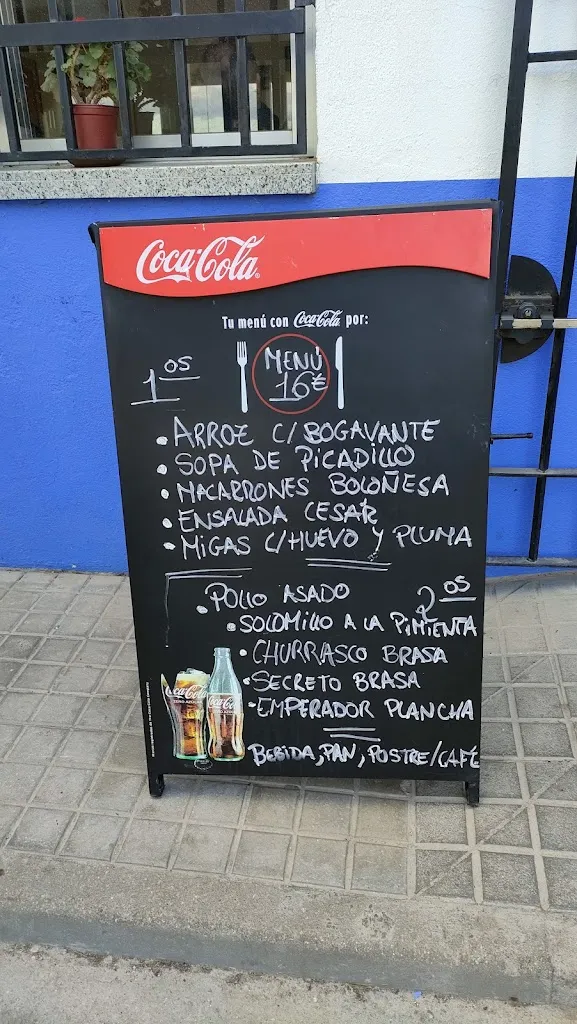 Coca-Cola
Tu menú con Coca-Cola por:
MENÚ
16€
1os
• ARROZ C/ BOGAVANTE
• SOPA DE PICADILLO
• MACARRONES BOLOÑESA
• ENSALADA CESAR
• MIGAS C/HUEVO Y PLUMA
2os
• POLLO ASADO
• SOLOMILLO A LA PIMIENTA
• CHURRASCO BRASA
• SECRETO BRASA
• EMPERADOR PLANCHA
BEBIDA, PAN, POSTRE/CAFÉ
Coca-Cola
Coca-Cola